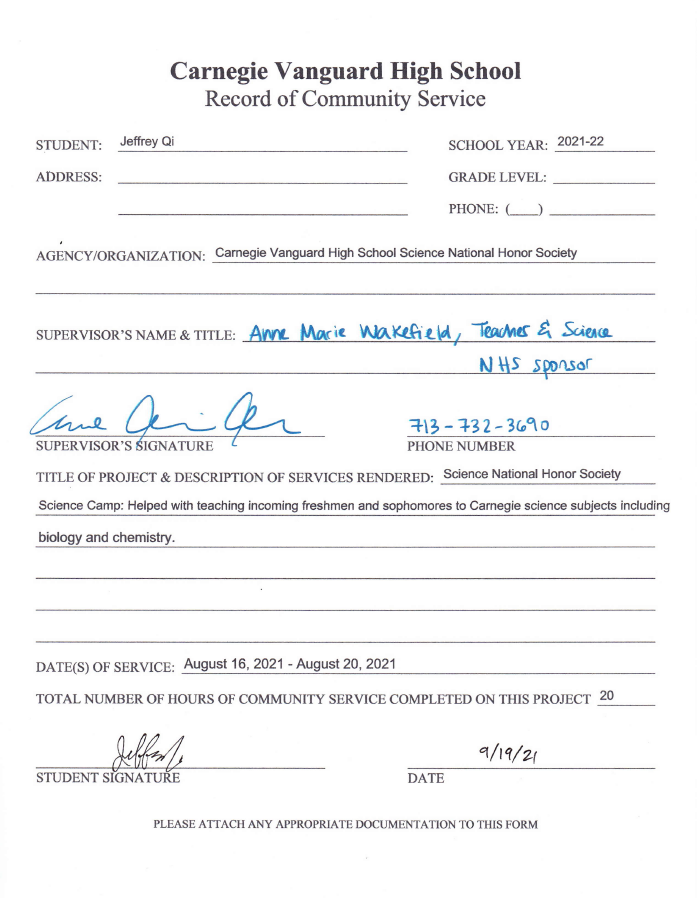 Carnegie Vanguard High School
Record of Community Service
STUDENT: Jeffrey Qi SCHOOL YEAR: 2021-22
ADDRESS: GRADE LEVEL:
PHONE: ( )
AGENCY/ORGANIZATION: Carnegie Vanguard High School Science National Honor Society
SUPERVISOR'S NAME & TITLE: Anne Marie Wakefield, Teacher & Science
NHS sponsor
713-732-3690
SUPERVISOR'S SIGNATURE PHONE NUMBER
TITLE OF PROJECT & DESCRIPTION OF SERVICES RENDERED: Science National Honor Society
Science Camp: Helped with teaching incoming freshmen and sophomores to Carnegie science subjects including
biology and chemistry.
DATE(S) OF SERVICE: August 16, 2021 - August 20, 2021
TOTAL NUMBER OF HOURS OF COMMUNITY SERVICE COMPLETED ON THIS PROJECT 20
9/19/21
STUDENT SIGNATURE DATE
PLEASE ATTACH ANY APPROPRIATE DOCUMENTATION TO THIS FORM